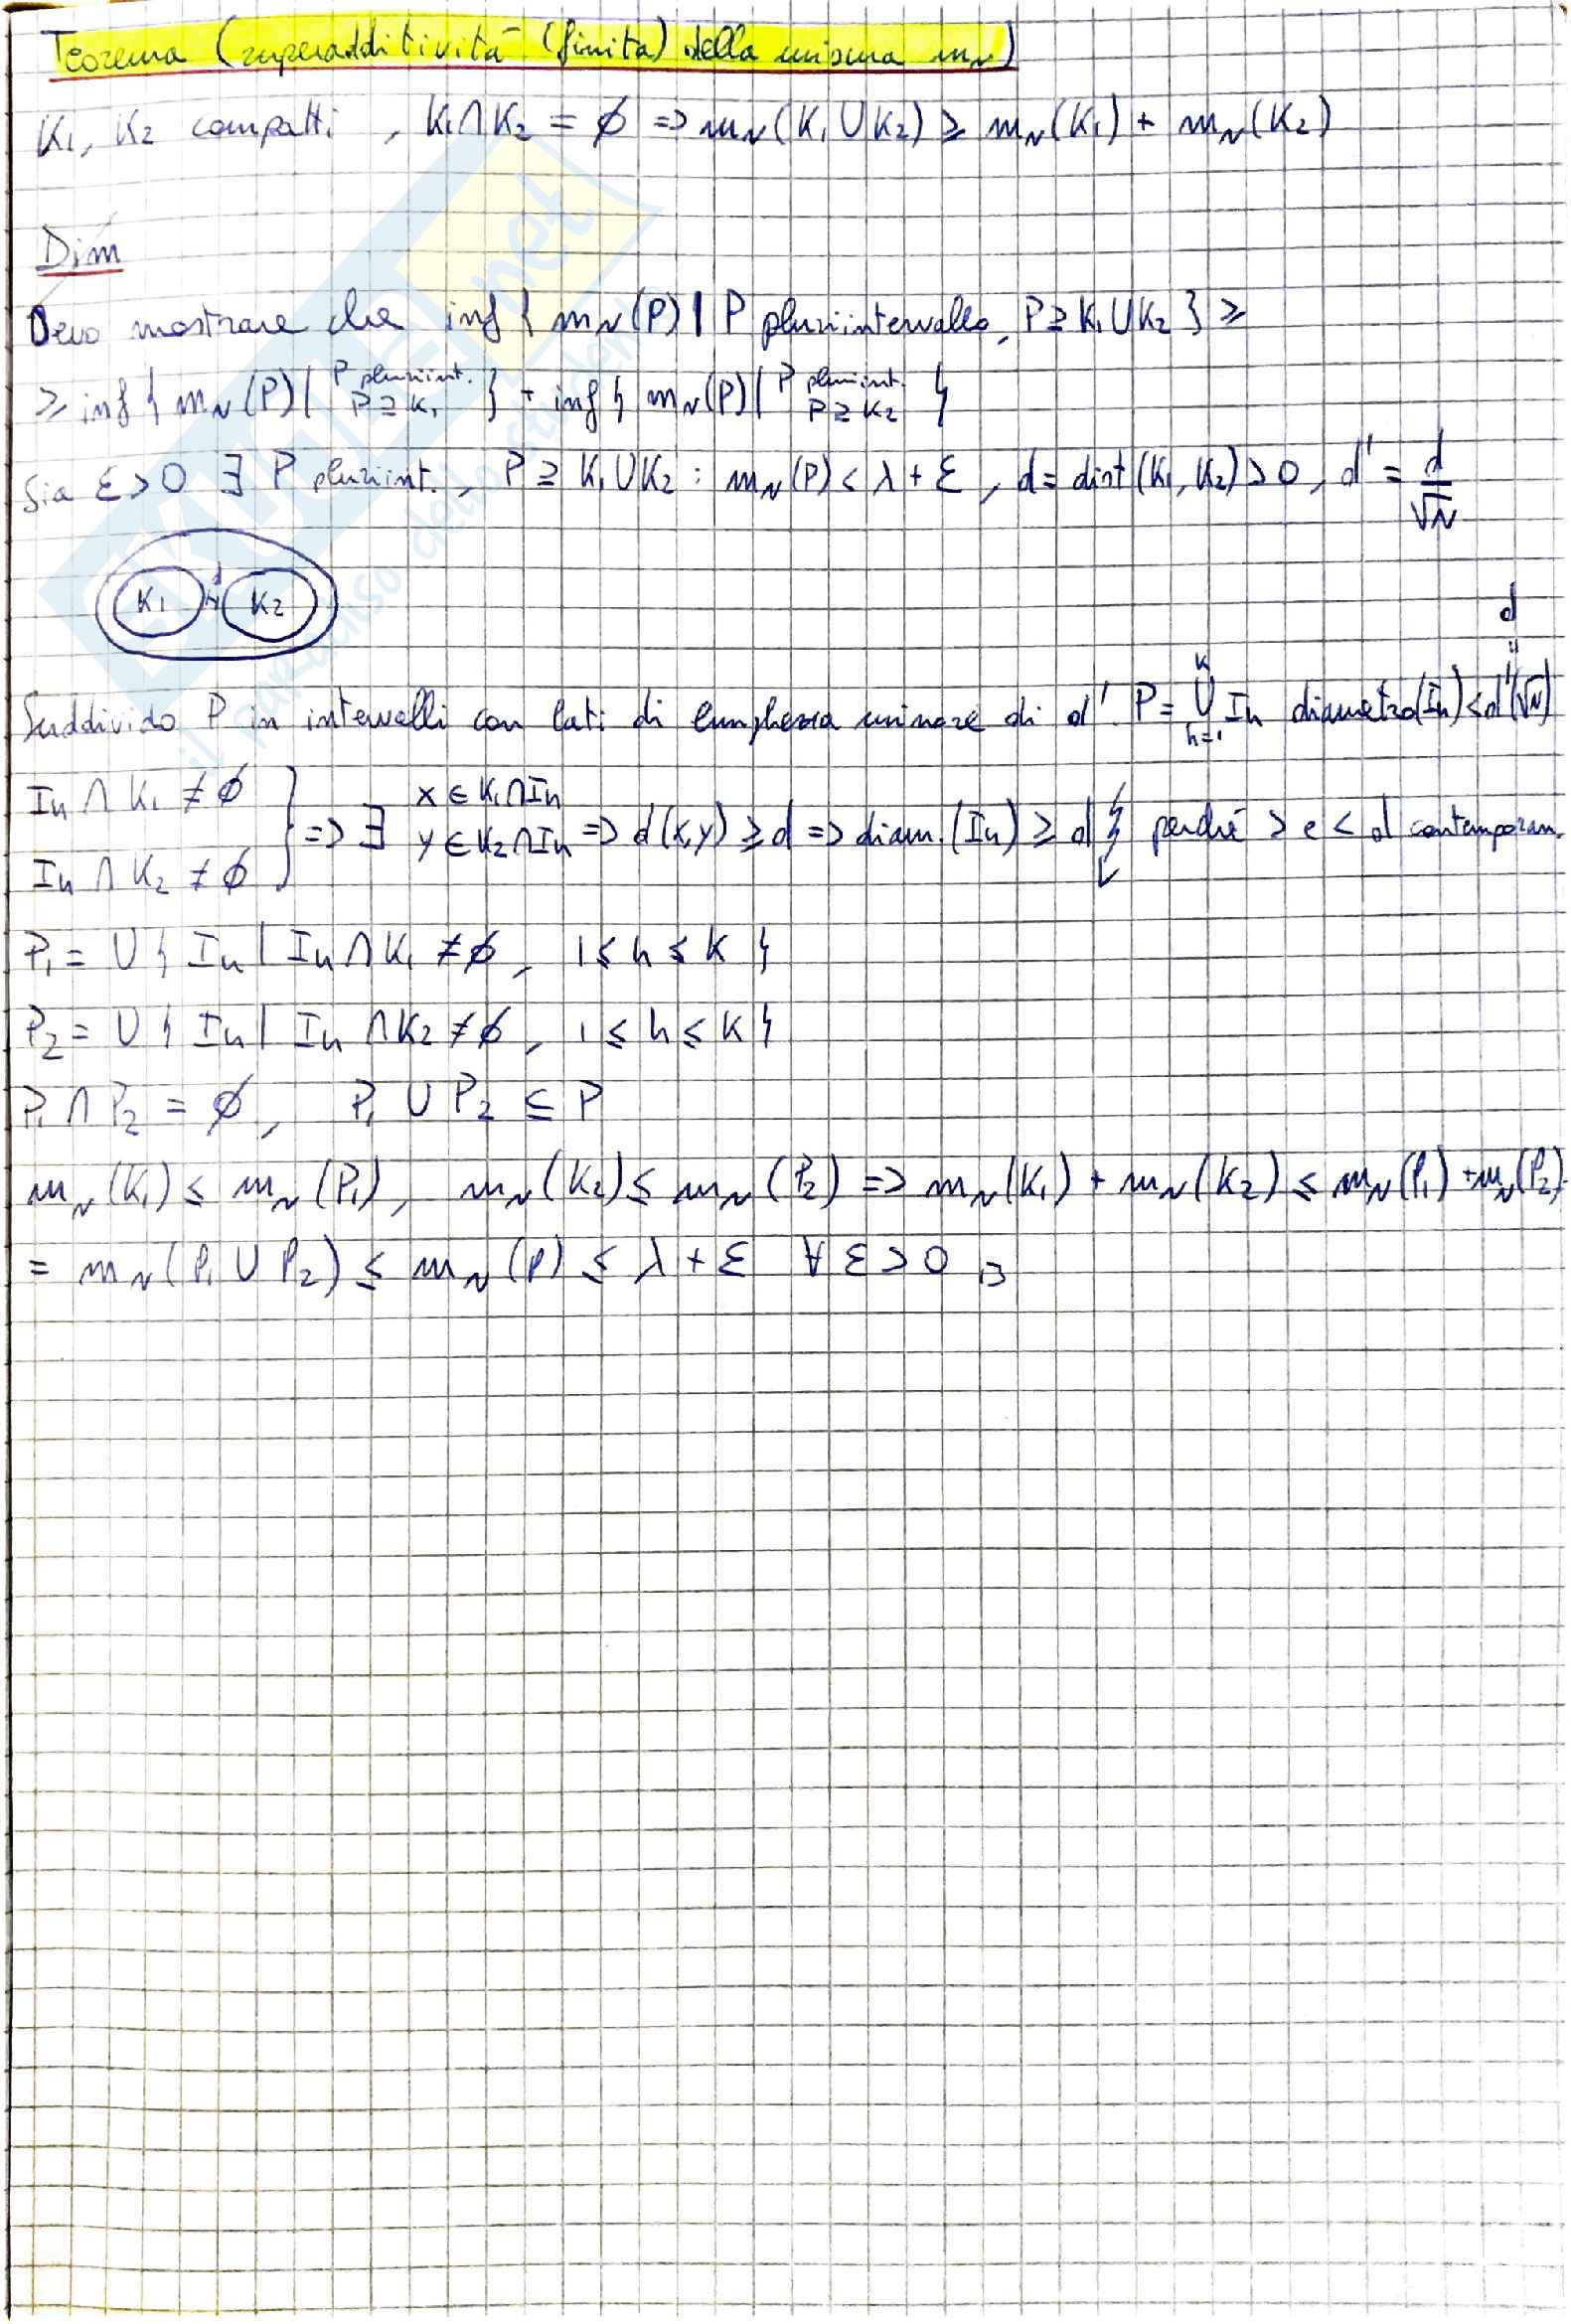 Teorema (superadditività (finita) della misura m_N)
K₁, K₂ compatti, K₁∩K₂ = ∅ => m_N(K₁∪K₂) ≥ m_N(K₁) + m_N(K₂)
Dim
Devo mostrare che inf{ m_N(P) | P pluriintervallo, P⊇K₁∪K₂ } ≥
≥ inf{ m_N(P) | P pluriint. P⊇K₁ } + inf{ m_N(P) | P pluriint. P⊇K₂ }
Sia ε>0 ∃ P pluriint., P ⊇ K₁∪K₂ : m_N(P) < λ + ε, d = dist(K₁, K₂) > 0, d' = d/√N
K₁ d K₂
d
=
Suddivido P in intervalli con lati di lunghezza minore di d'. P = ⋃_{h=1}^{K} I_h diametro(I_h) < d'(√N)
I_h ∩ K₁ ≠ ∅
I_h ∩ K₂ ≠ ∅ } => ∃ x ∈ K₁∩I_h y ∈ K₂∩I_h => d(x,y) ≥ d => diam.(I_h) ≥ d ↯ perché > e < d contemporan.
P₁ = ∪{ I_h | I_h ∩ K₁ ≠ ∅, 1 ≤ h ≤ K }
P₂ = ∪{ I_h | I_h ∩ K₂ ≠ ∅, 1 ≤ h ≤ K }
P₁ ∩ P₂ = ∅, P₁ ∪ P₂ ⊆ P
m_N(K₁) ≤ m_N(P₁), m_N(K₂) ≤ m_N(P₂) => m_N(K₁) + m_N(K₂) ≤ m_N(P₁) + m_N(P₂)
= m_N(P₁ ∪ P₂) ≤ m_N(P) ≤ λ + ε ∀ ε > 0